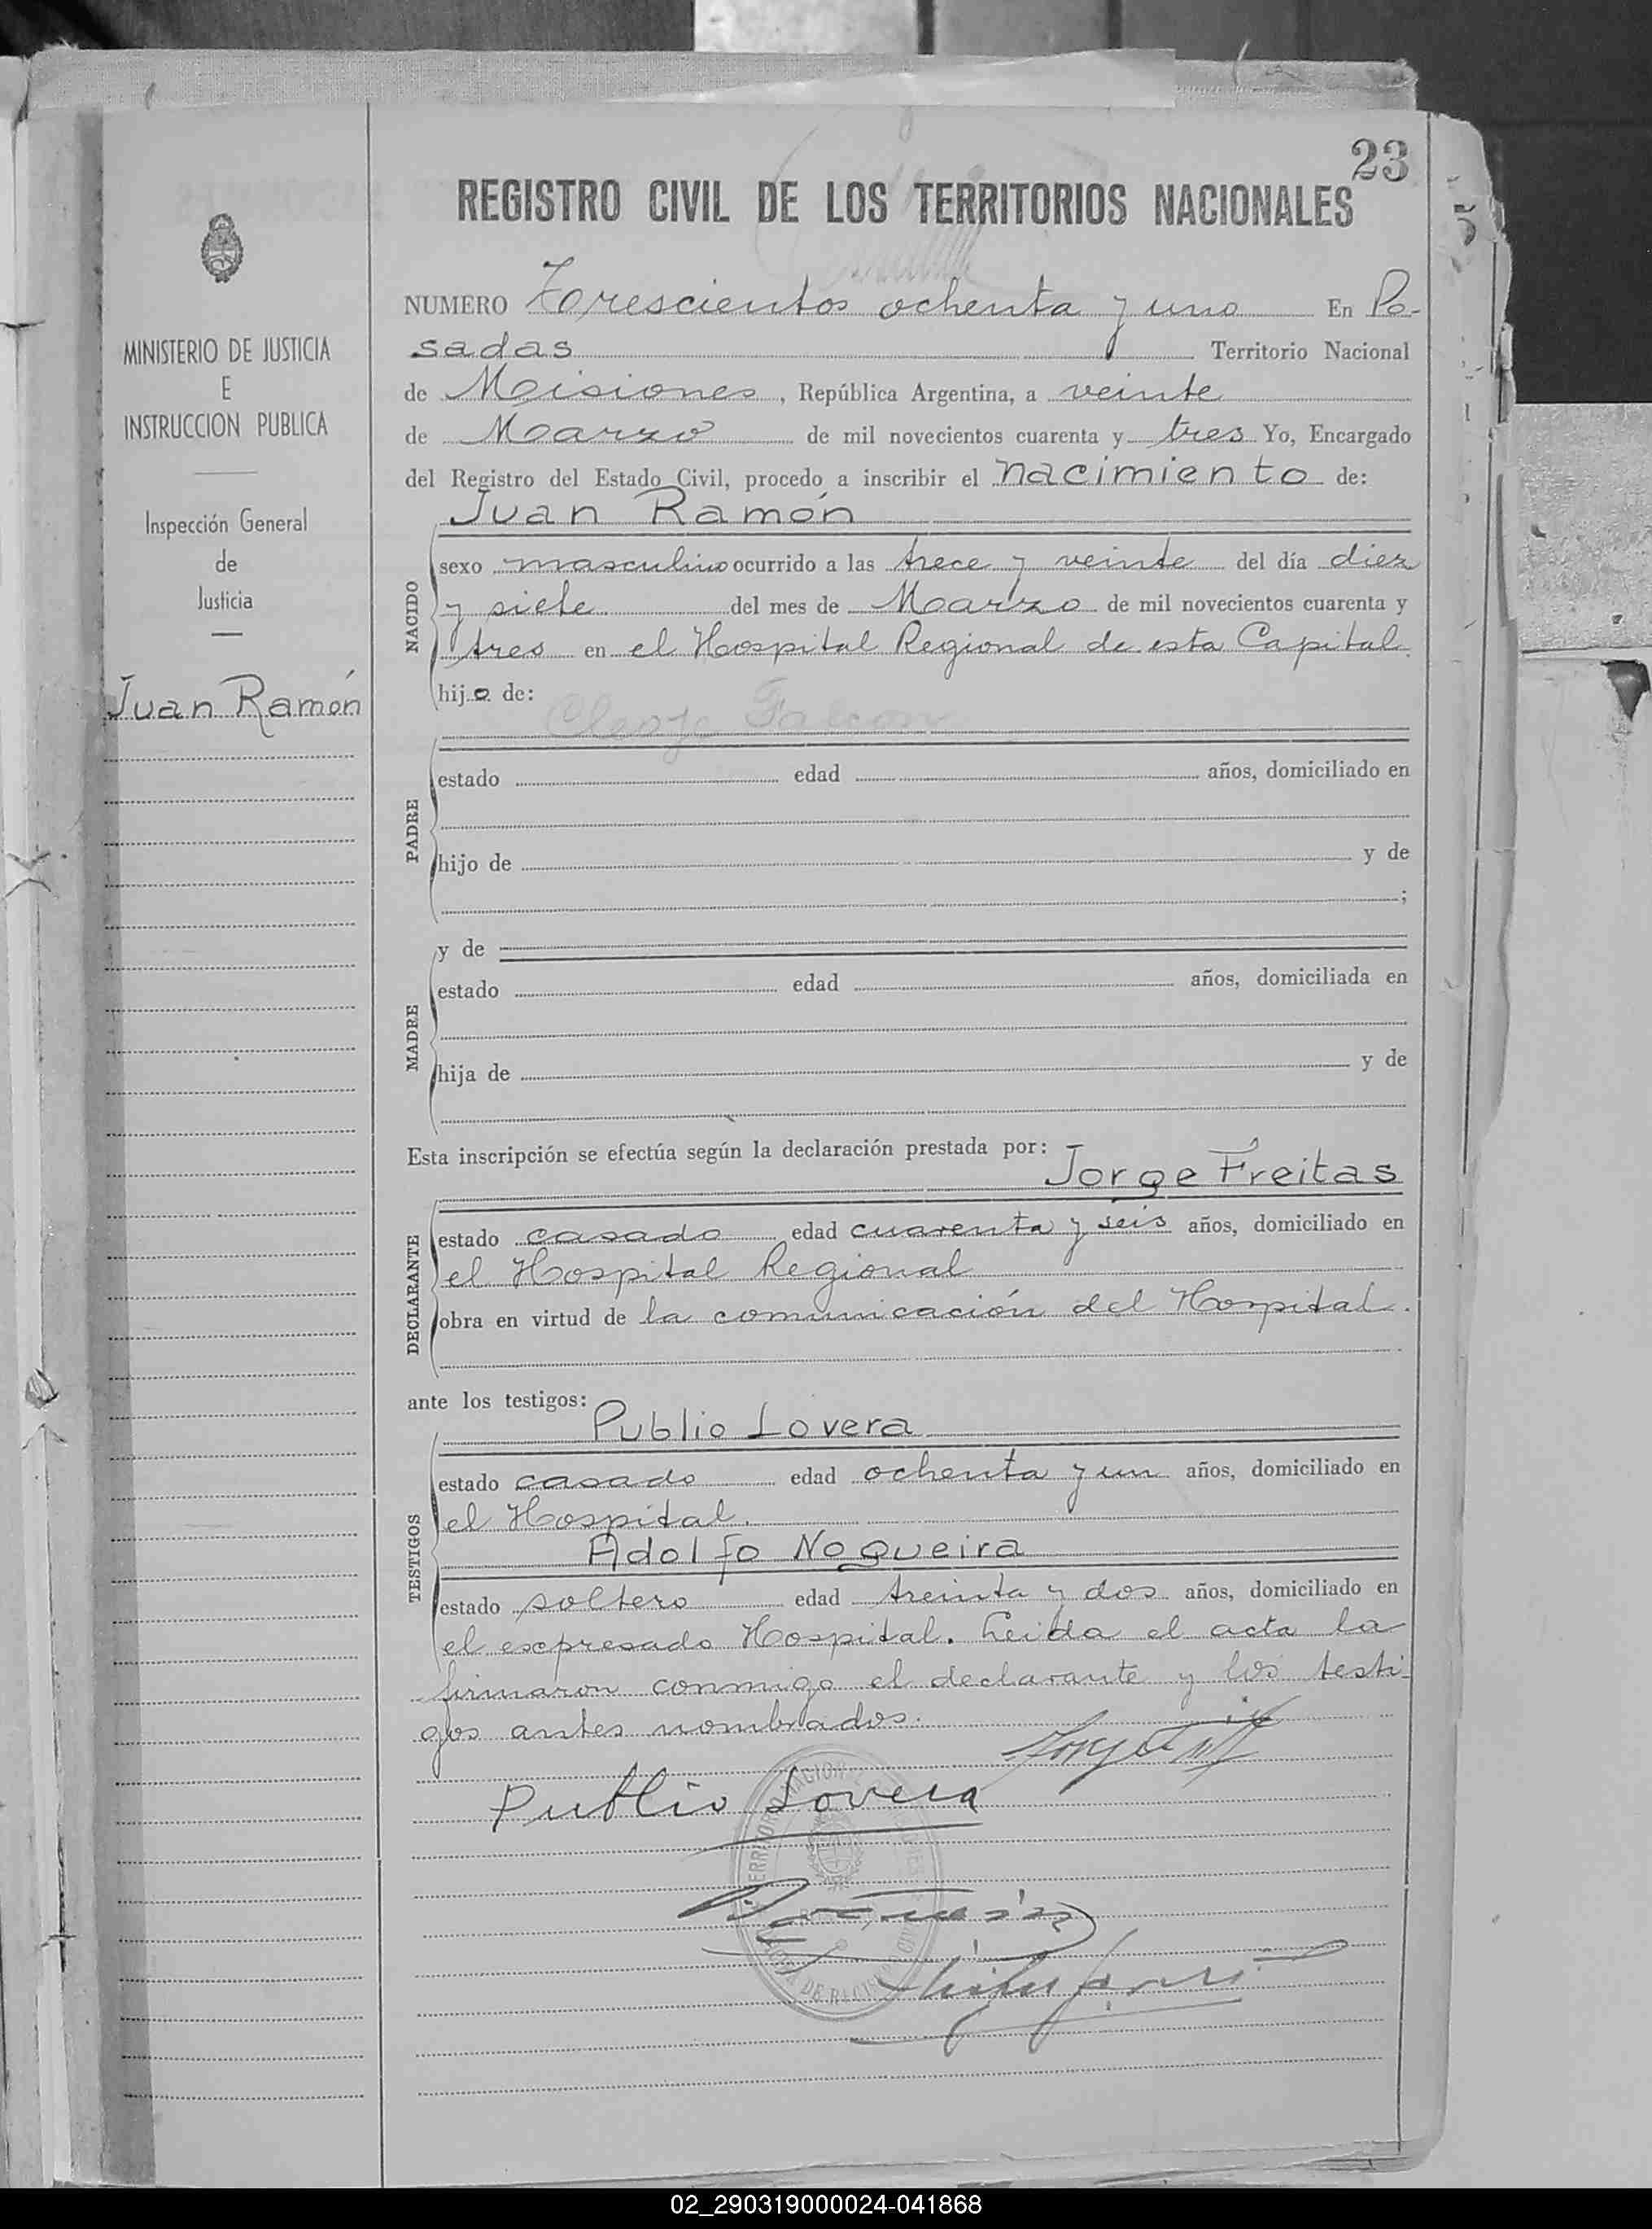 23
REGISTRO CIVIL DE LOS TERRITORIOS NACIONALES
5
MINISTERIO DE JUSTICIA
E
INSTRUCCION PUBLICA
Inspección General
de
Justicia
Juan Ramón
NUMERO Trescientos ochenta y uno En Po-
sadas Territorio Nacional
de Misiones, República Argentina, a veinte
de Marzo de mil novecientos cuarenta y tres Yo, Encargado
del Registro del Estado Civil, procedo a inscribir el nacimiento de:
Juan Ramón
NACIDO
sexo masculino ocurrido a las trece y veinte del día diez
y siete del mes de Marzo de mil novecientos cuarenta y
tres en el Hospital Regional de esta Capital.
hijo de:
Falcon
PADRE
estado edad años, domiciliado en
hijo de y de
;
y de
MADRE
estado edad años, domiciliada en
hija de y de
Esta inscripción se efectúa según la declaración prestada por:
Jorge Freitas
DECLARANTE
estado casado edad cuarenta y seis años, domiciliado en
el Hospital Regional
obra en virtud de la comunicación del Hospital.
ante los testigos:
Publio Lovera
TESTIGOS
estado casado edad ochenta y un años, domiciliado en
el Hospital.
Adolfo Nogueira
estado soltero edad treinta y dos años, domiciliado en
el expresado Hospital. Leida el acta la
firmaron conmigo el declarante y los testi-
gos antes nombrados.
Publio Lovera
02_290319000024-041868